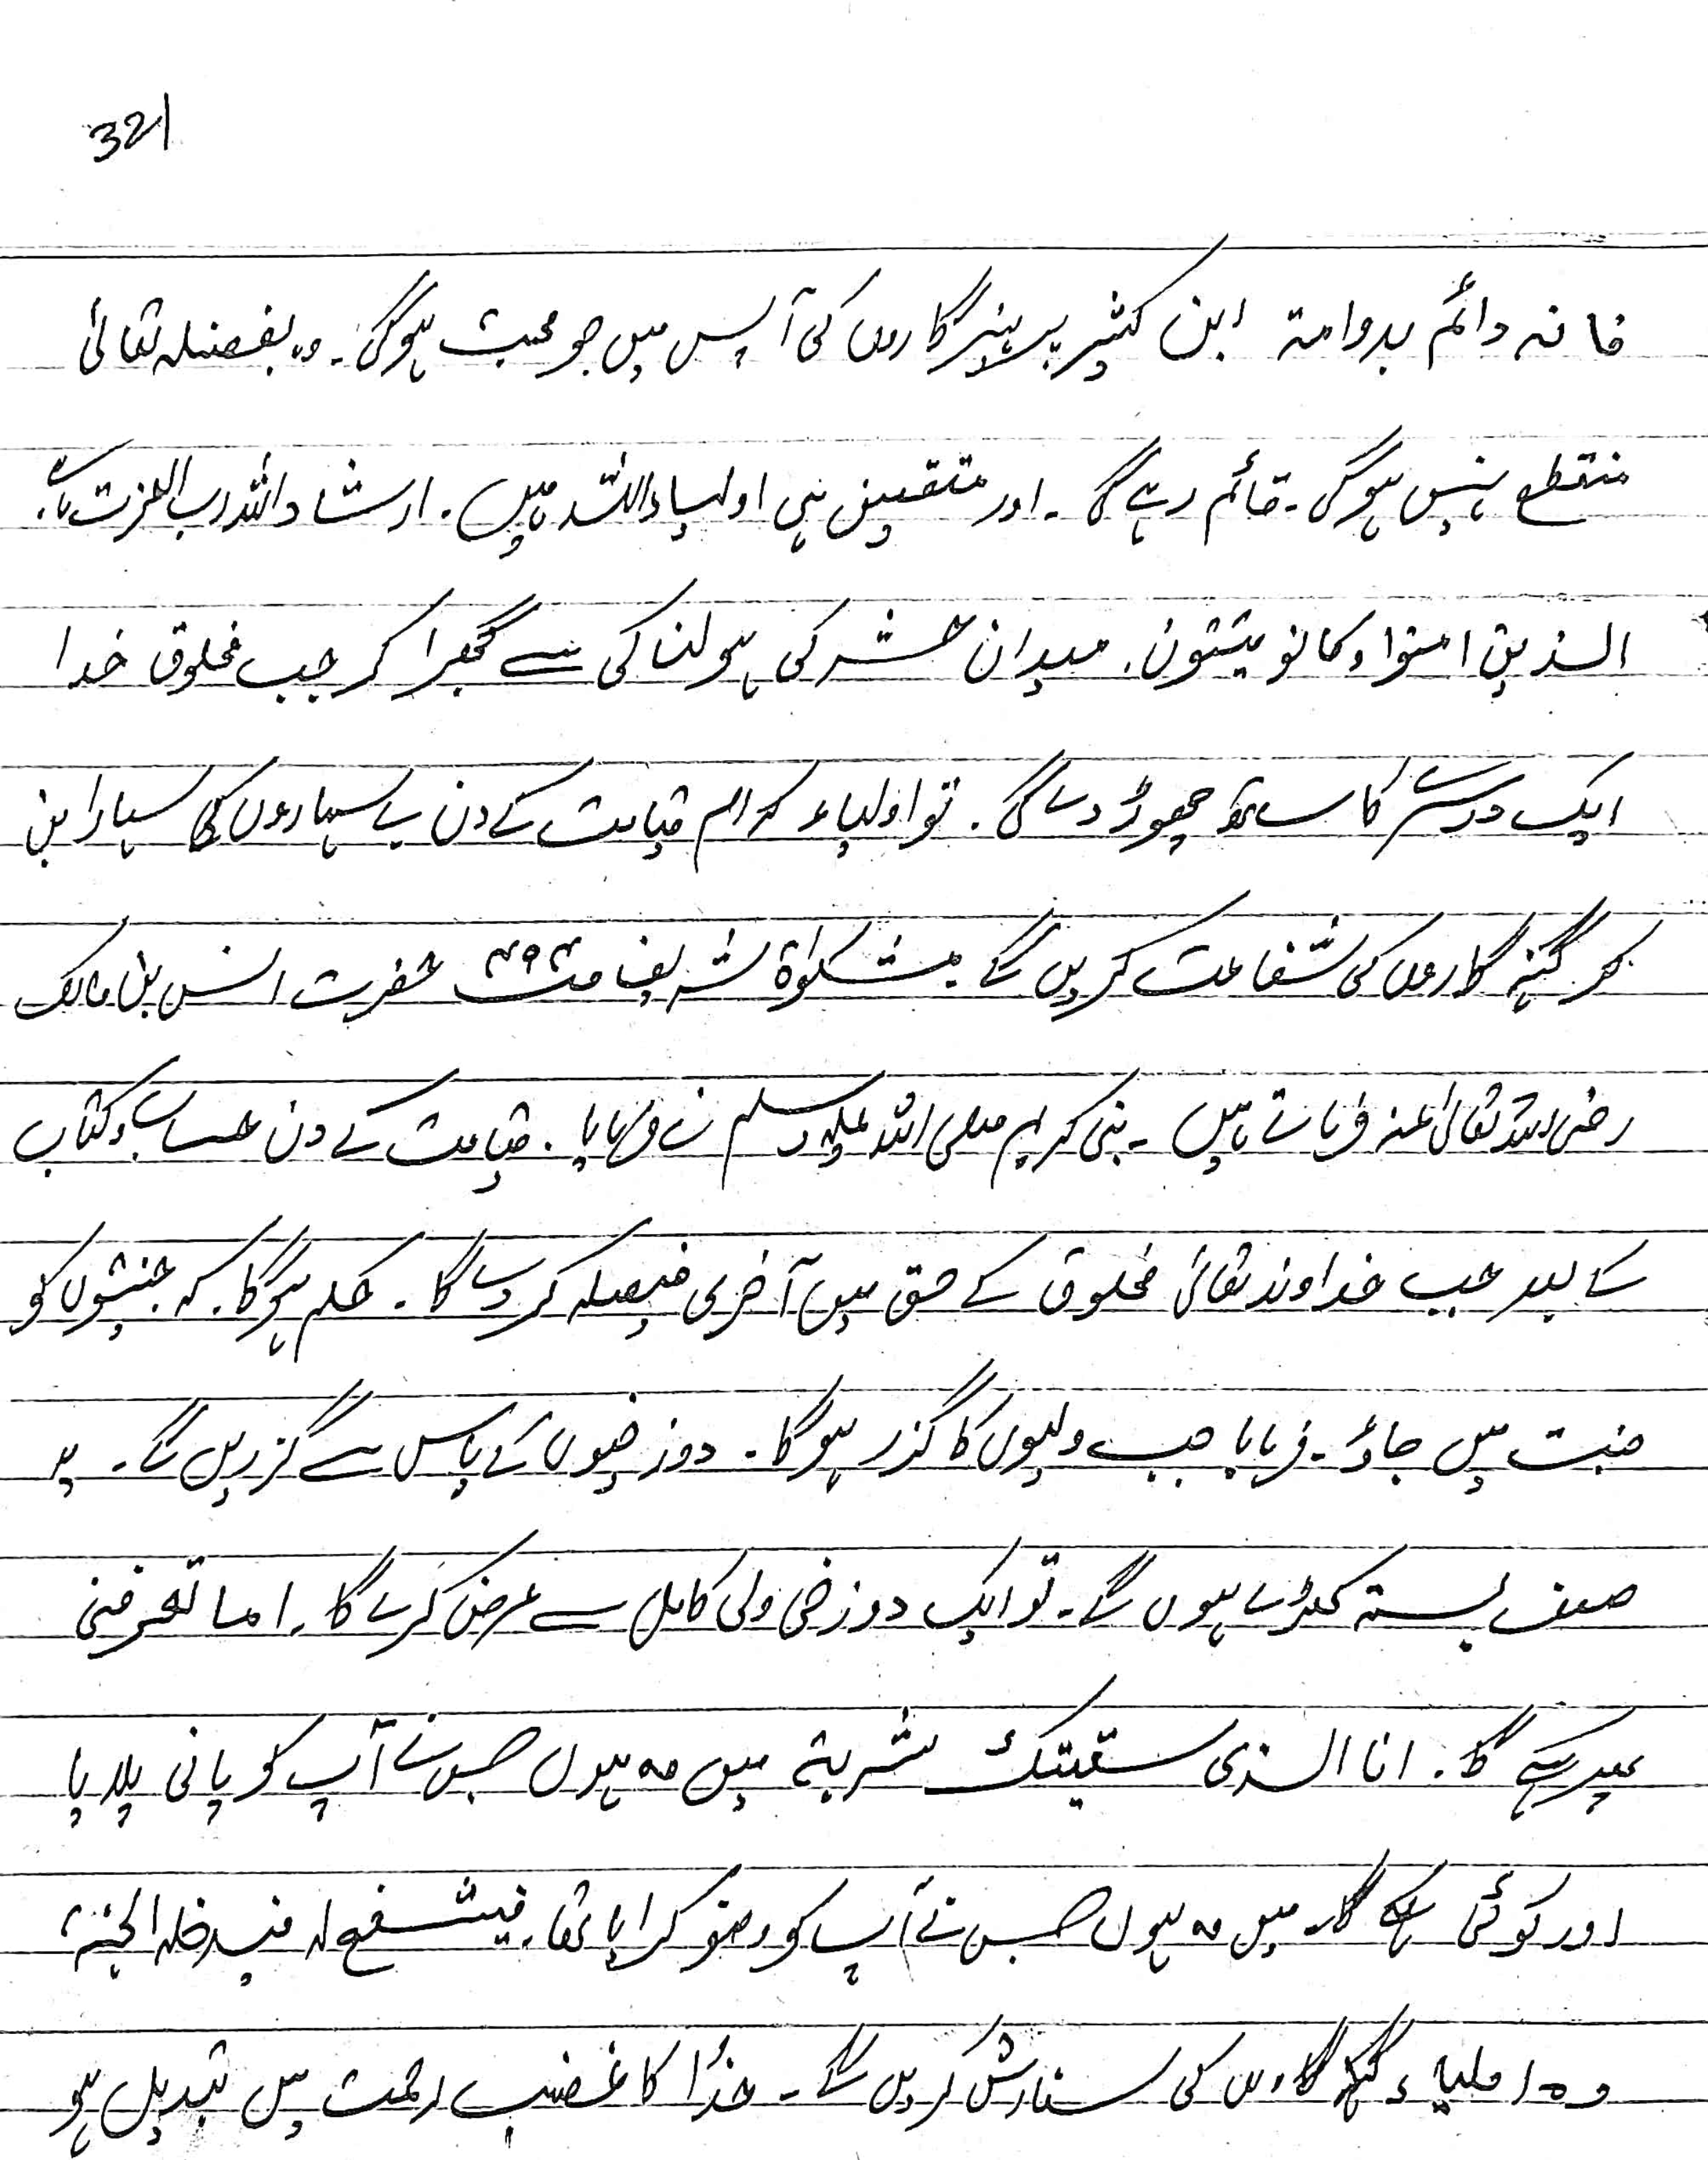 321
فانہ دائم بدوامہ ابن کثیر پرہیزگاروں کی آپس میں جو محبت ہوگی۔ وہ بفضلہ تعالیٰ
منقطع نہیں ہوگی۔ قائم رہے گی۔ اور متقین ہی اولیاء اللہ ہیں۔ ارشاد اللہ رب العزت ہے۔
الذین امنوا وکانو یتقون۔ میدان حشر کی ہولناکی سے گھبرا کر جب مخلوق خدا
ایک دوسرے کا ساتھ چھوڑ دے گی۔ تو اولیاء کرام قیامت کے دن بے سہاروں کا سہارا بن
کر گنہگاروں کی شفاعت کریں گے۔ مشکواۃ شریف ص۴۹۴ حضرت انس بن مالک
رضی اللہ تعالیٰ عنہ فرماتے ہیں۔ نبی کریم صلی اللہ علیہ وسلم نے فرمایا۔ قیامت کے دن حساب و کتاب
کے بعد جب خداوند تعالیٰ مخلوق کے حق میں آخری فیصلہ کر دے گا۔ حکم ہوگا۔ کہ جنتیوں کو
جنت میں جاؤ۔ فرمایا جب ولیوں کا گذر ہوگا۔ دوزخیوں کے پاس سے گزریں گے۔ یہ
صف بستہ کھڑے ہوں گے۔ تو ایک دوزخی ولی کامل سے عرض کرے گا۔ اما تعرفنی
پھر کہے گا۔ انا الذی سقیتک شربۃ میں وہ ہوں جس نے آپ کو پانی پلایا
اور کوئی کہے گا۔ میں وہ ہوں جس نے آپ کو وضو کرایا تھا۔ فیشفع لہ فیدخلہ الجنۃ
وہ اولیاء گنہگاروں کی سفارش کریں گے۔ خدا کا غضب رحمت میں تبدیل ہو